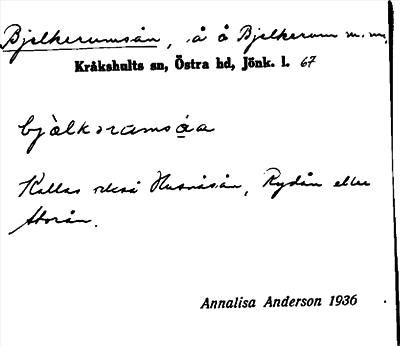 Bjelkerumsån, å å Bjelkerum m.m.
Kråkshults sn, Östra hd, Jönk. l. 67
bjàlkɔramsåa
Kallas också Husnäsån, Rydån eller
Storån.
Annalisa Anderson 1936